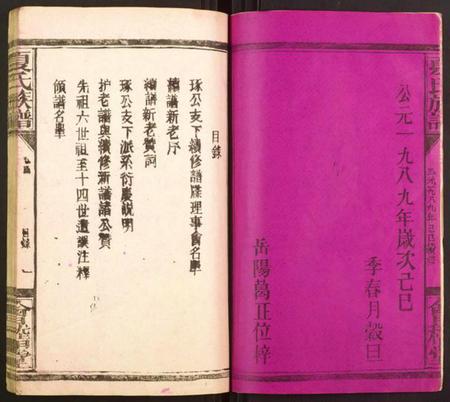 公元一九八九年歲次己巳
季春月穀旦
岳陽葛正位梓
夏氏族譜
目錄
琢公支下續修譜牒理事會名單
舊譜新老序
續譜新老贊詞
琢公支下派系衍慶說明
护老譜與續修新譜諸公贊
先祖六世祖至十四世遺誤注釋
領譜名單
夏氏族譜
目錄 一
會賢堂